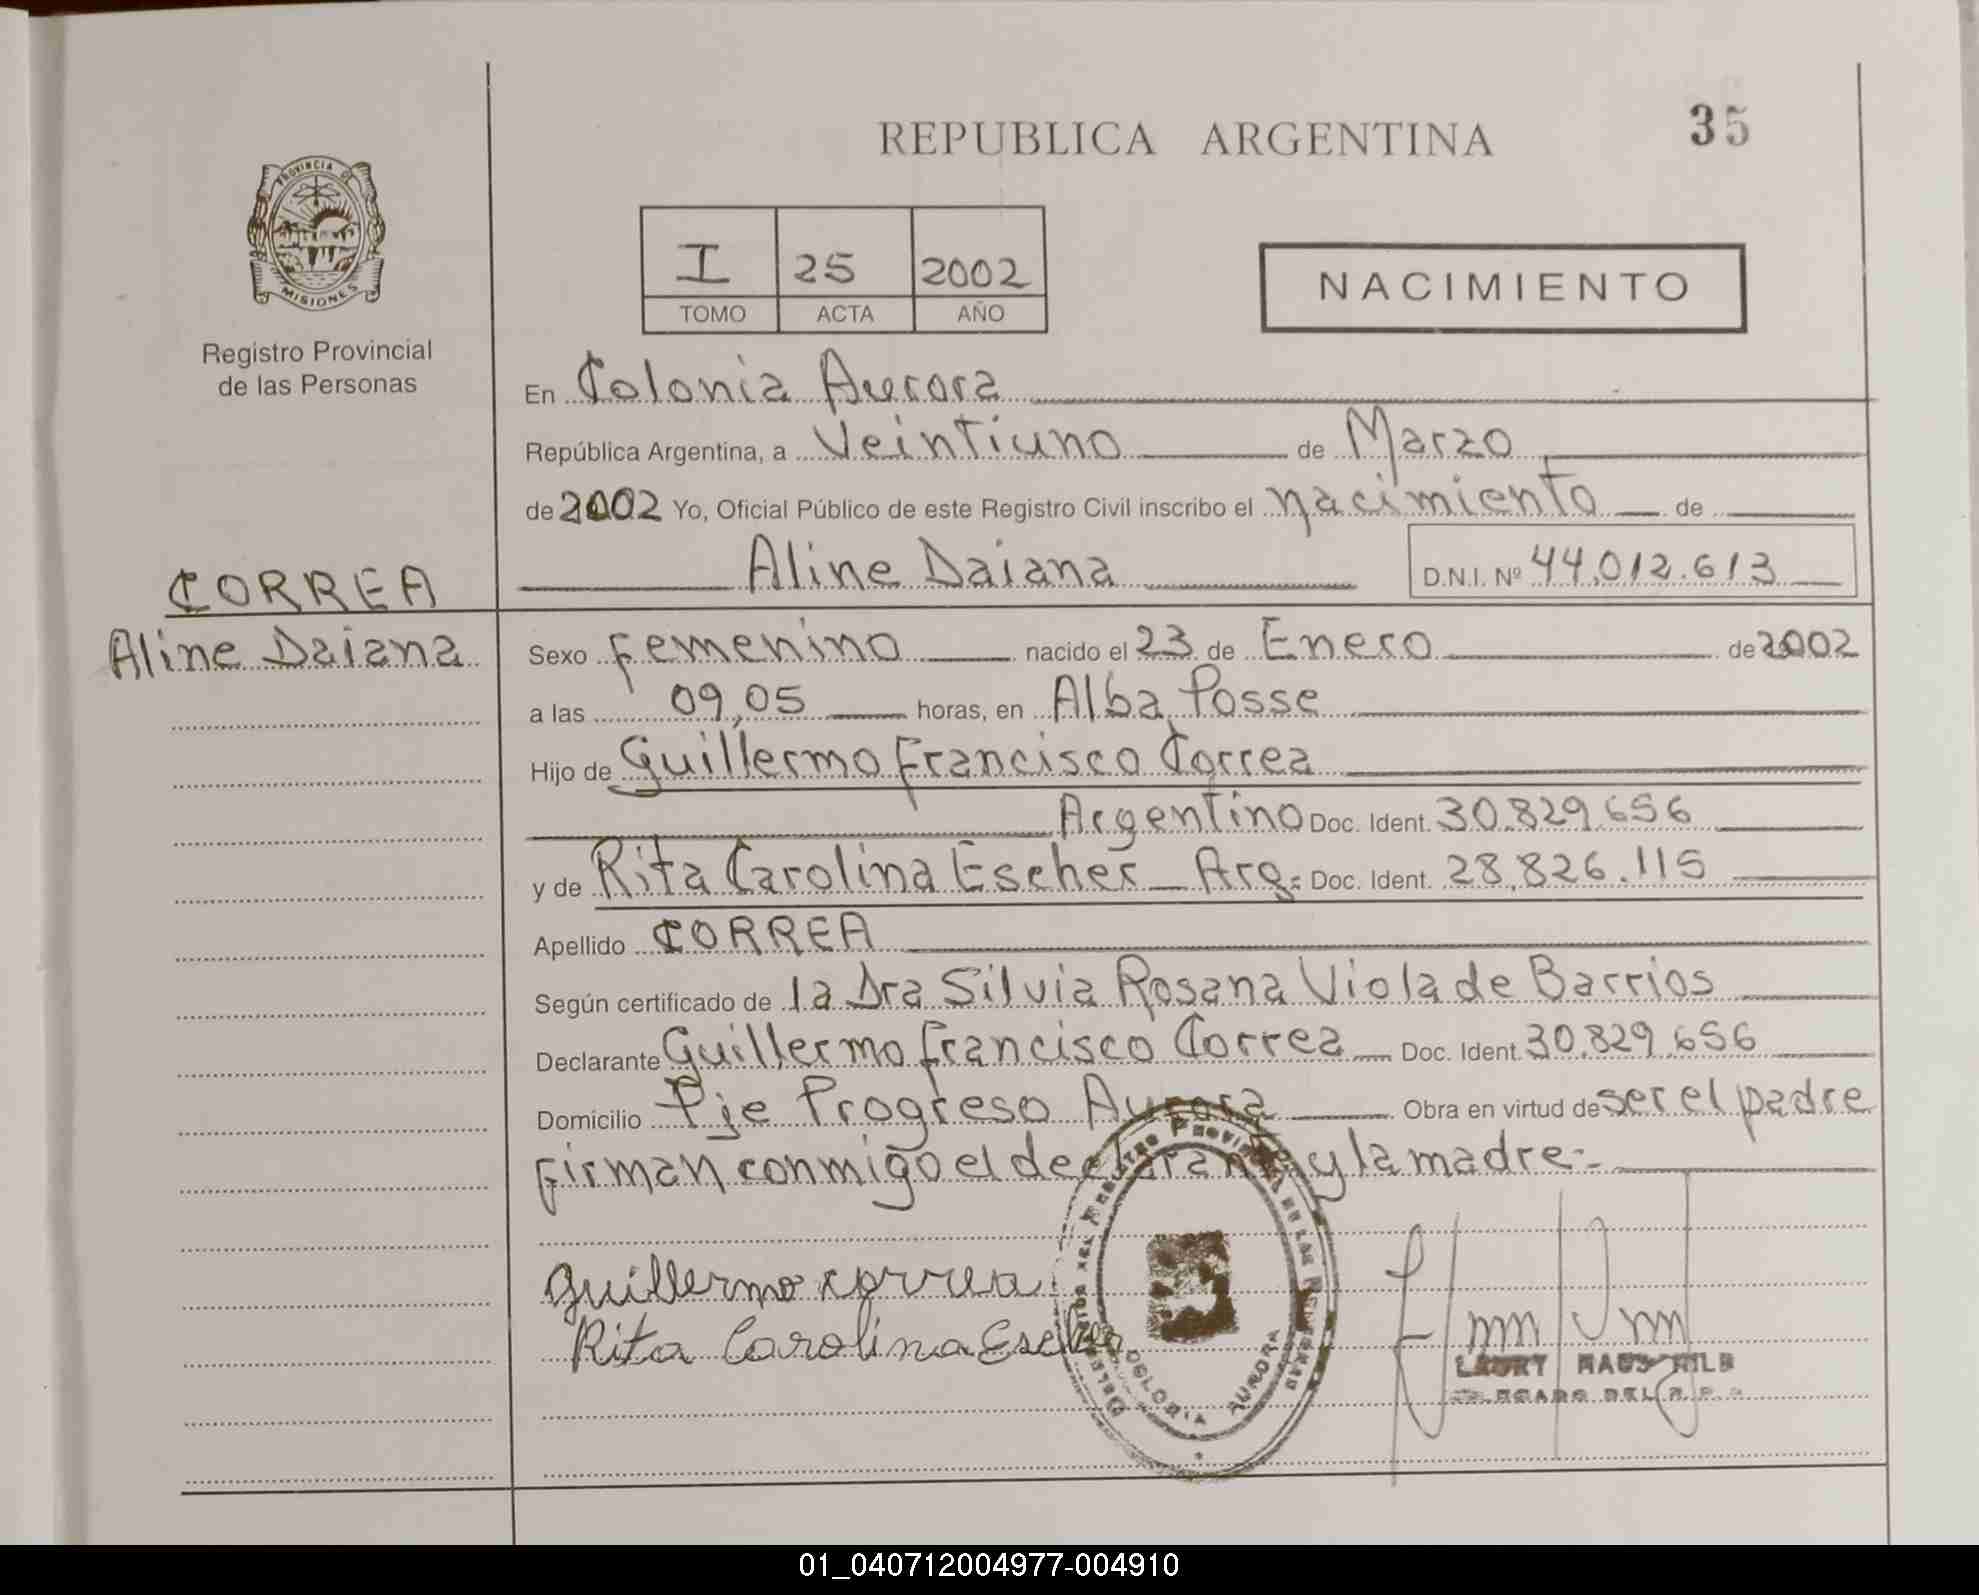 REPUBLICA ARGENTINA
35
PROVINCIA DE
MISIONES
Registro Provincial
de las Personas
I 25 2002
TOMO ACTA AÑO
NACIMIENTO
En Colonia Aurora
República Argentina, a Veintiuno de Marzo
de 2002 Yo, Oficial Público de este Registro Civil inscribo el nacimiento de
Aline Daiana D.N.I. Nº 44.012.613
CORREA
Aline Daiana
Sexo Femenino nacido el 23 de Enero de 2002
a las 09,05 horas, en Alba Posse
Hijo de Guillermo Francisco Correa
Argentino Doc. Ident. 30.829.656
y de Rita Carolina Escher Arg. Doc. Ident. 28.826.115
Apellido CORREA
Según certificado de la Dra Silvia Rosana Viola de Barrios
Declarante Guillermo Francisco Correa Doc. Ident. 30.829.656
Domicilio Pje Progreso Aurora Obra en virtud de ser el padre
firman conmigo el declarante y la madre.-
Guillermo correa
Rita Carolina Escher
AURORA
01_040712004977-004910